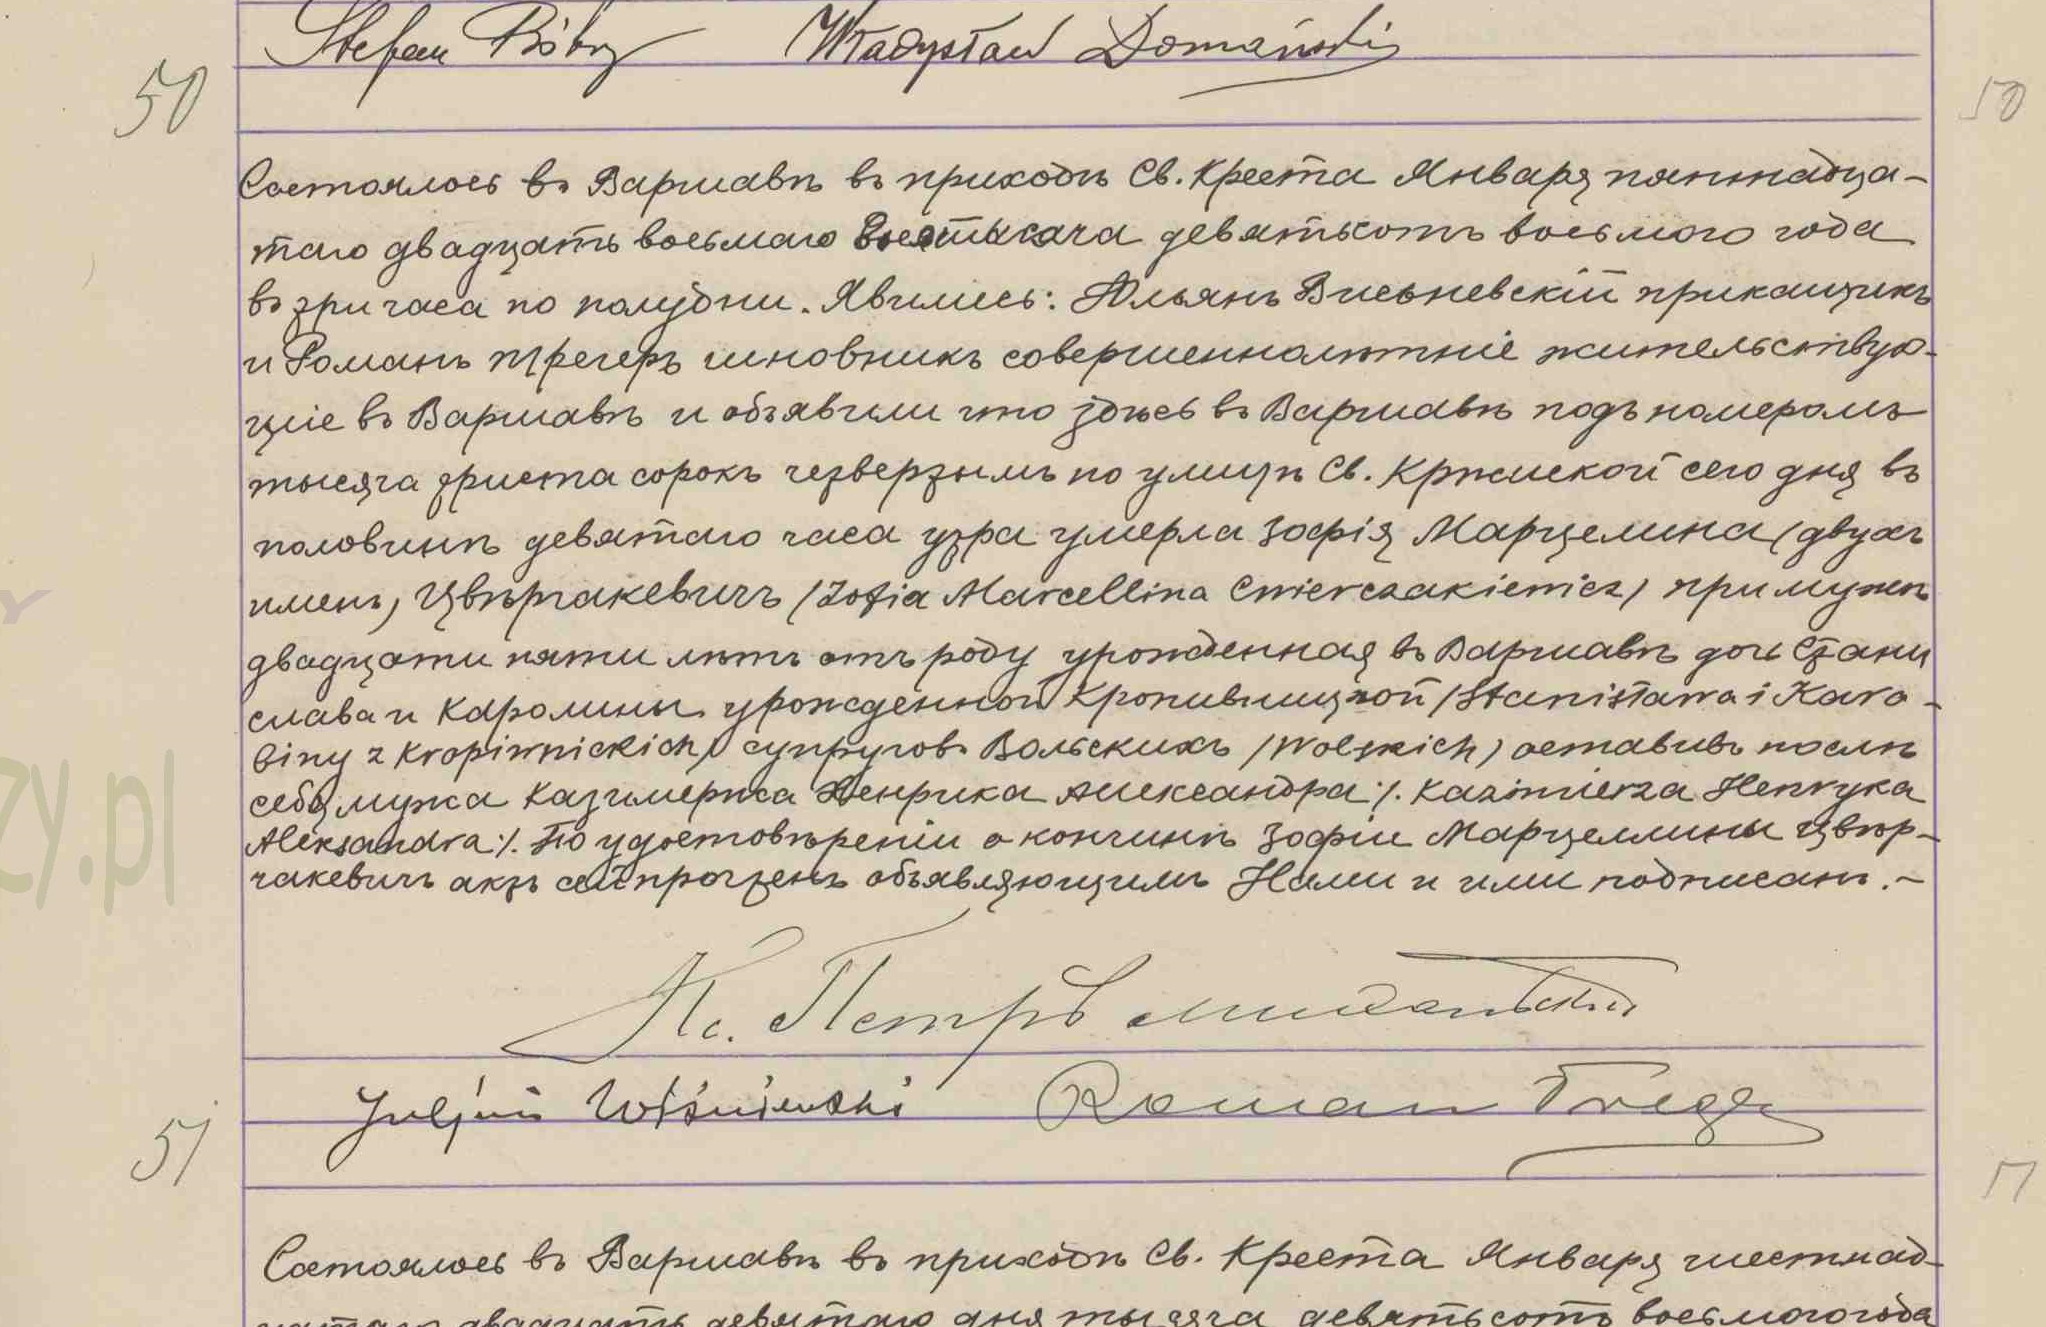 Stefan Bóbr Władysław Domański
50
50
Состоялось въ Варшавѣ въ приходѣ Св. Креста Января пятнадца-
таго двадцать восьмаго тысяча девятьсотъ восьмого года
въ три часа по полудни. Явились: Юльянъ Висьневскій прикащикъ
и Романъ Трегеръ чиновникъ совершеннолѣтніе жительствую-
щіе въ Варшавѣ и объявили что здѣсь въ Варшавѣ подъ номеромъ
тысяча триста сорокъ четвертымъ по улицѣ Св. Кржиской сего дня въ
половинѣ девятаго часа утра умерла Зофія Марцелина (двухъ
именъ) Цвѣрчакевичъ (Zofia Marcellina Cwierczakiewicz) при мужѣ
двадцати пяти лѣтъ отъ роду урожденная въ Варшавѣ дочь Стани
слава и Каролины урожденной Кропивницкой (Stanisława i Karo-
liny z Kropiwnickich) супруговъ Вольскихъ (Wolskich) оставивъ послѣ
себя мужа Казимержа Генрика Александра ./. Kazimierza Henryka
Aleksandra ./. По удостовѣреніи о кончинѣ Зофіи Марцеллины Цвѣр-
чакевичъ актъ сей прочтенъ объявляющимъ Нами и ими подписанъ. -
Кс. Петръ
Juljan Wiśniewski Roman Treger
51
51
Состоялось въ Варшавѣ въ приходѣ Св. Креста Января шестнад-
цатаго двадцать девятаго дня тысяча девятьсотъ восьмого года
zy.pl